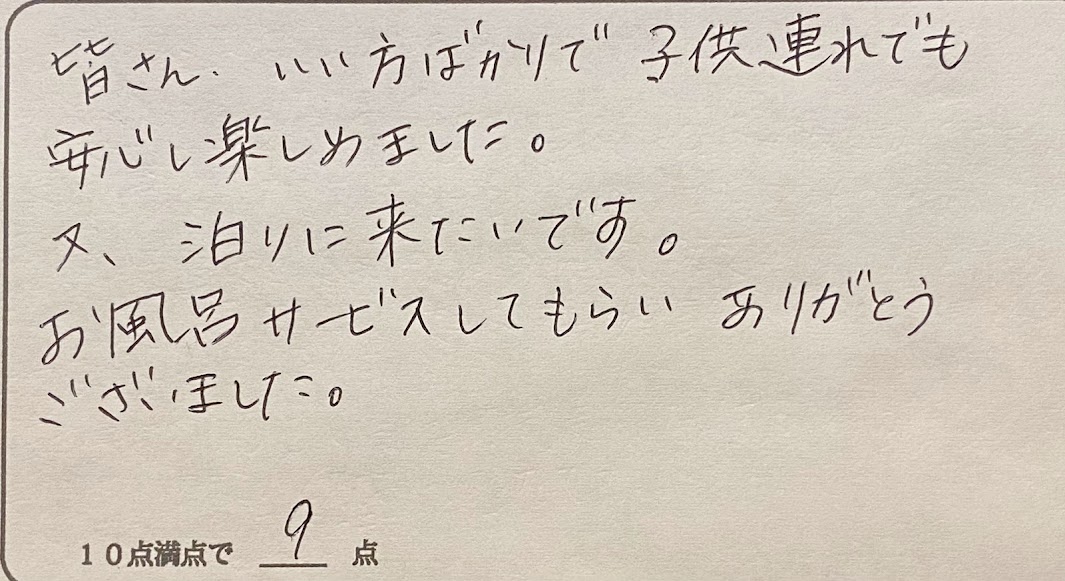 皆さん、いい方ばかりで 子供連れでも
安心し楽しめました。
又、泊りに来たいです。
お風呂サービスしてもらい ありがとう
ございました。
10点満点で 9 点